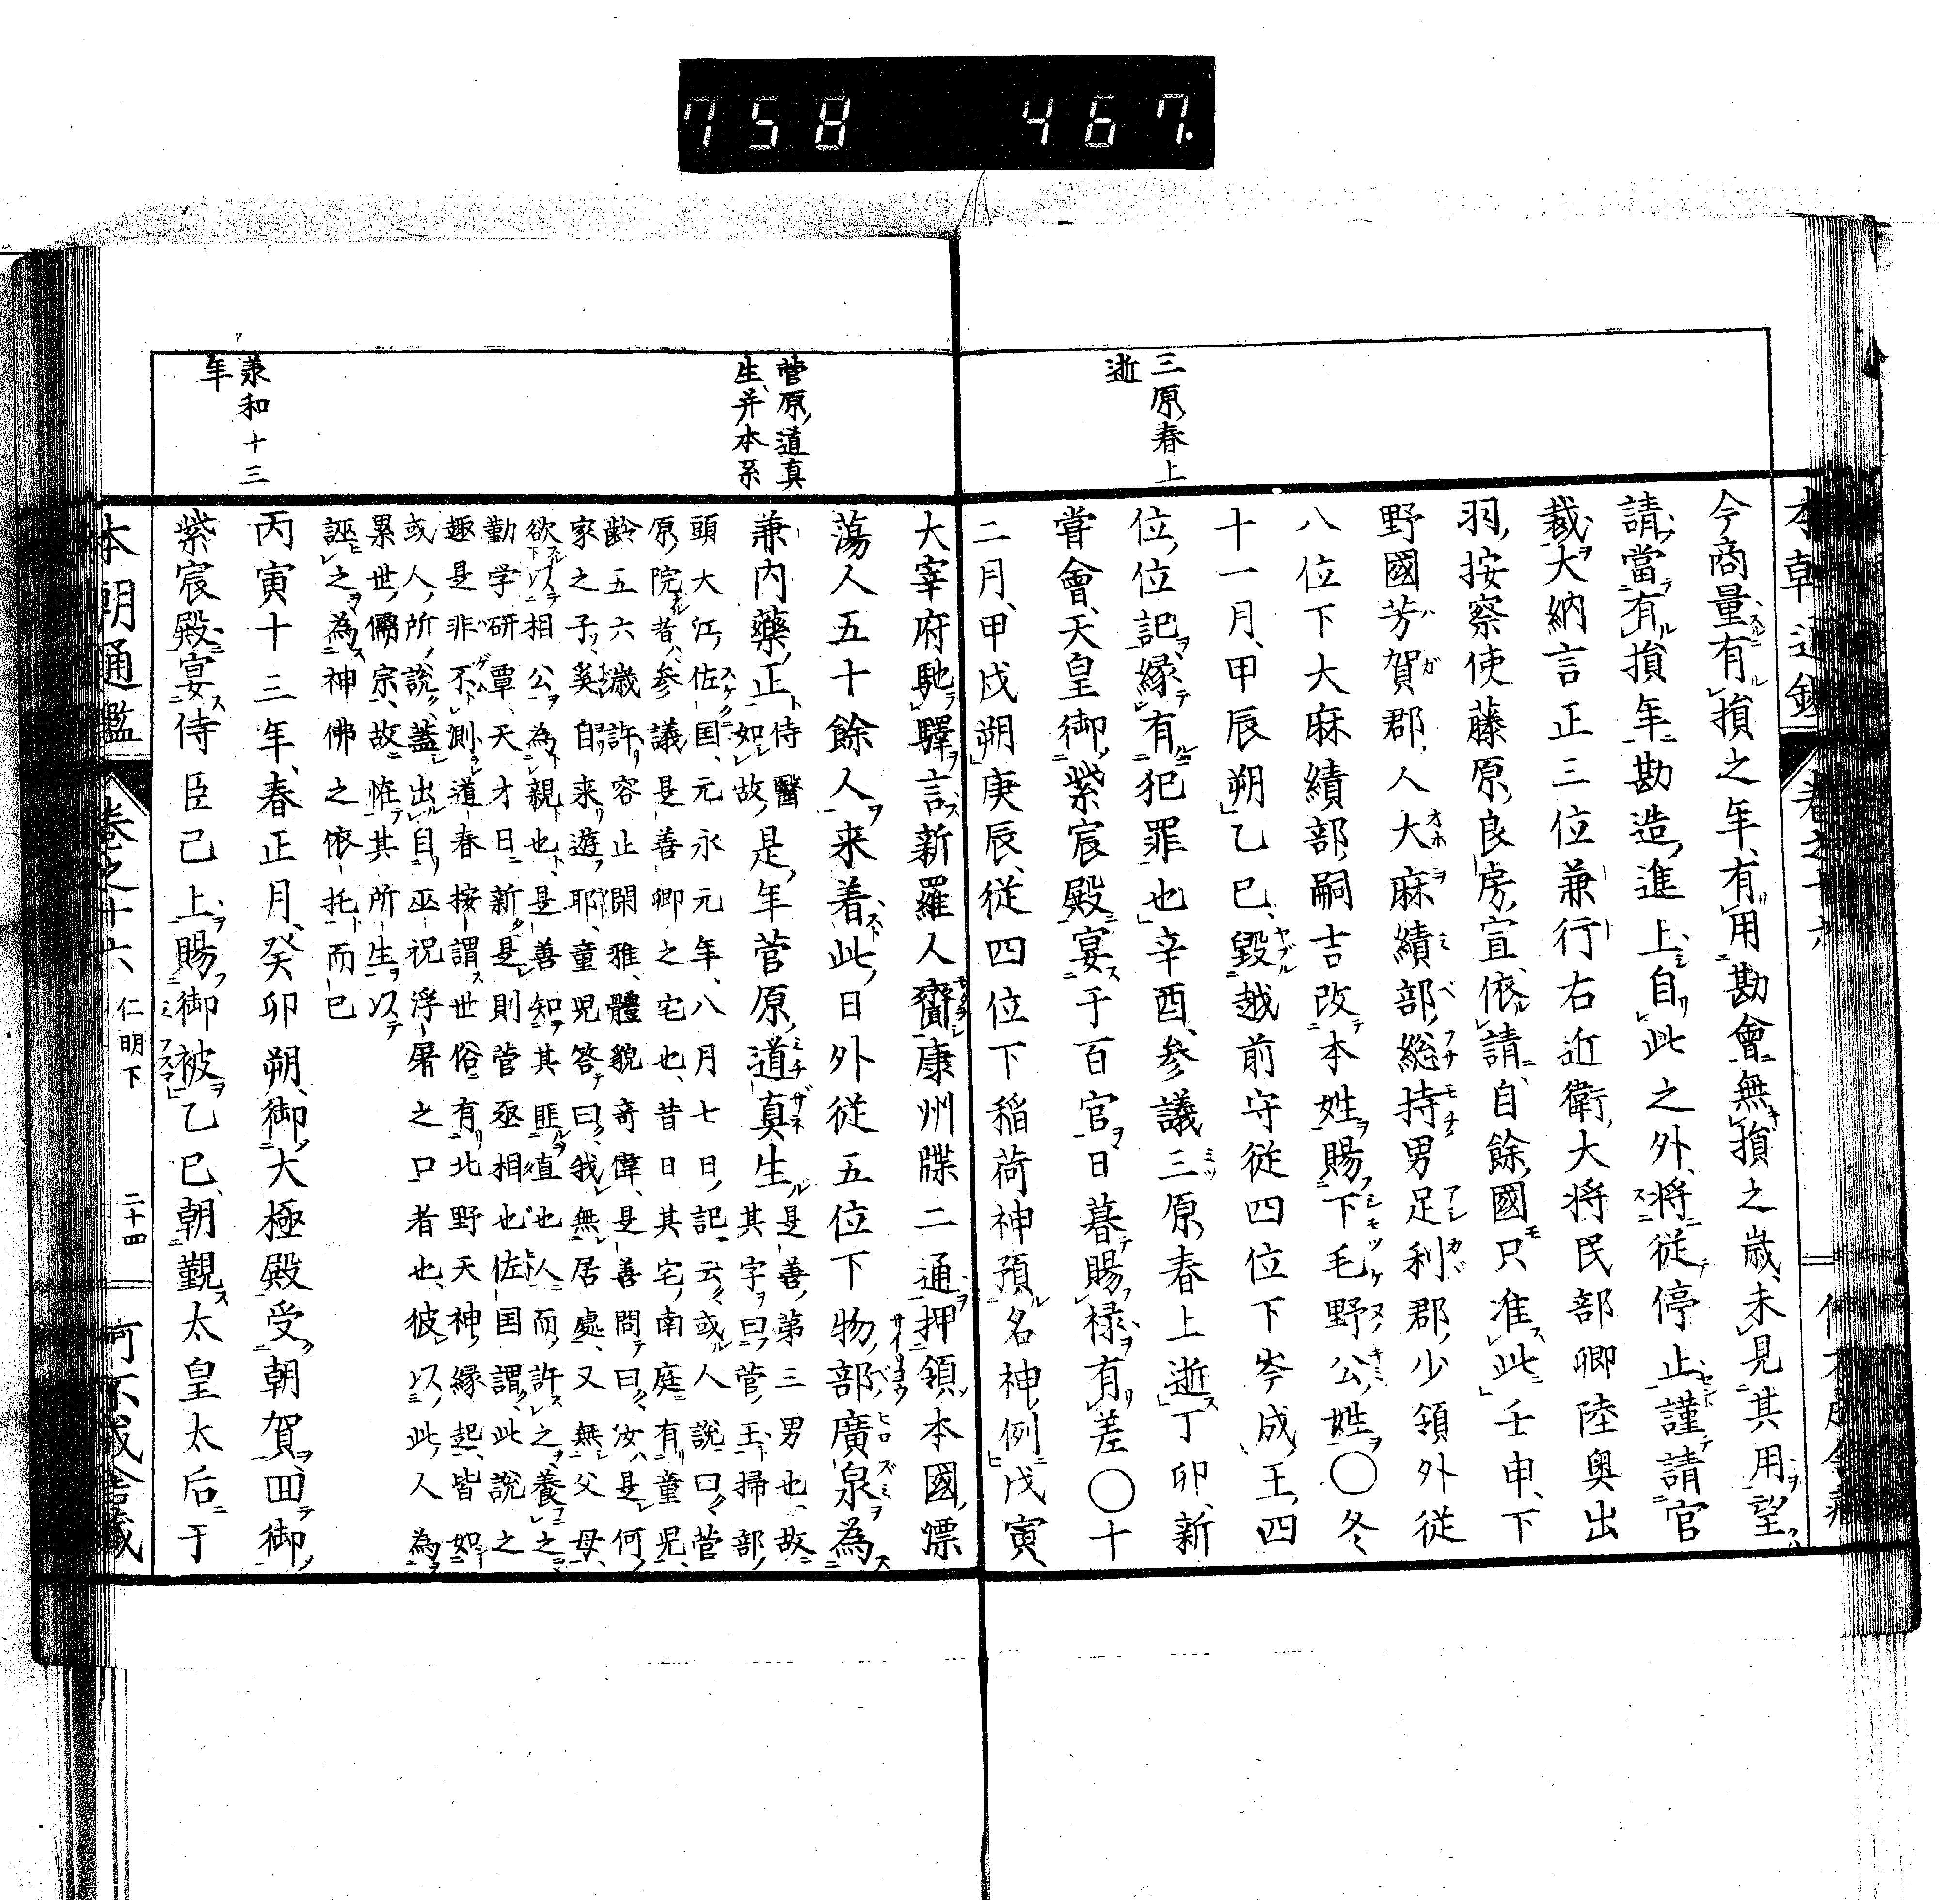 758 467.
三原春上
逝
今商量有損之年、有用勘會無損之歳、未見其用望
請當有損年勘造進上自此之外、將從停止謹請官
裁大納言正三位兼行右近衛大将民部卿陸奥出
羽按察使藤原良房宣、依請、自餘國只准此壬申、下
野國芳賀郡人大麻績部総持男足利郡少領外従
八位下大麻績部嗣吉改本姓賜下毛野公姓〇冬
十一月、甲辰朔乙巳、毀越前守従四位下岑成王四
位位記縁有犯罪也辛酉、参議三原春上逝丁卯、新
甞會、天皇御紫宸殿宴于百官日暮賜禄有差〇十
二月、甲戌朔庚辰、従四位下稲荷神預名神例戊寅、
菅原道真
生并本系
大宰府馳驛言新羅人齎康州牒二通押領本國漂
蕩人五十餘人来着此日外従五位下物部廣泉為
兼内藥正侍醫如故是年菅原道真生是善第三男也、故其字曰菅三掃部
頭大江佐国、元永元年、八月七日、記云或人説曰菅
原院者参議是善卿之宅也、昔日其宅南庭有童児、
齢五六歳許容止閑雅、體貌奇偉、是善問曰汝是何
家之子、奚自来遊耶童児答曰我無居處又無父母、
欲以相公為親也是善知其匪直也人而許之養之
勤学研覃、天才日新是則菅丞相也佐国謂此説之
趣是非不則道春按謂世俗有北野天神縁起皆如
或人所説蓋出自巫祝浮屠之口者也、彼以此人為
累世儒宗故怪其所生以
誣之為神佛之依托而已
承和十三
年
丙寅十三年、春正月、癸卯朔、御大極殿受朝賀囬御
紫宸殿宴侍臣己上賜御被乙巳、朝覲太皇太后于
本朝通鑑 卷之十六 仁明下 二十四